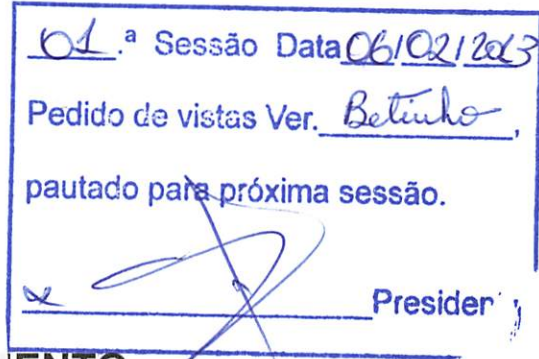 01.ª Sessão Data 06/02/2023
Pedido de vistas Ver. Betinho,
pautado para próxima sessão.
Presiden
ENTO